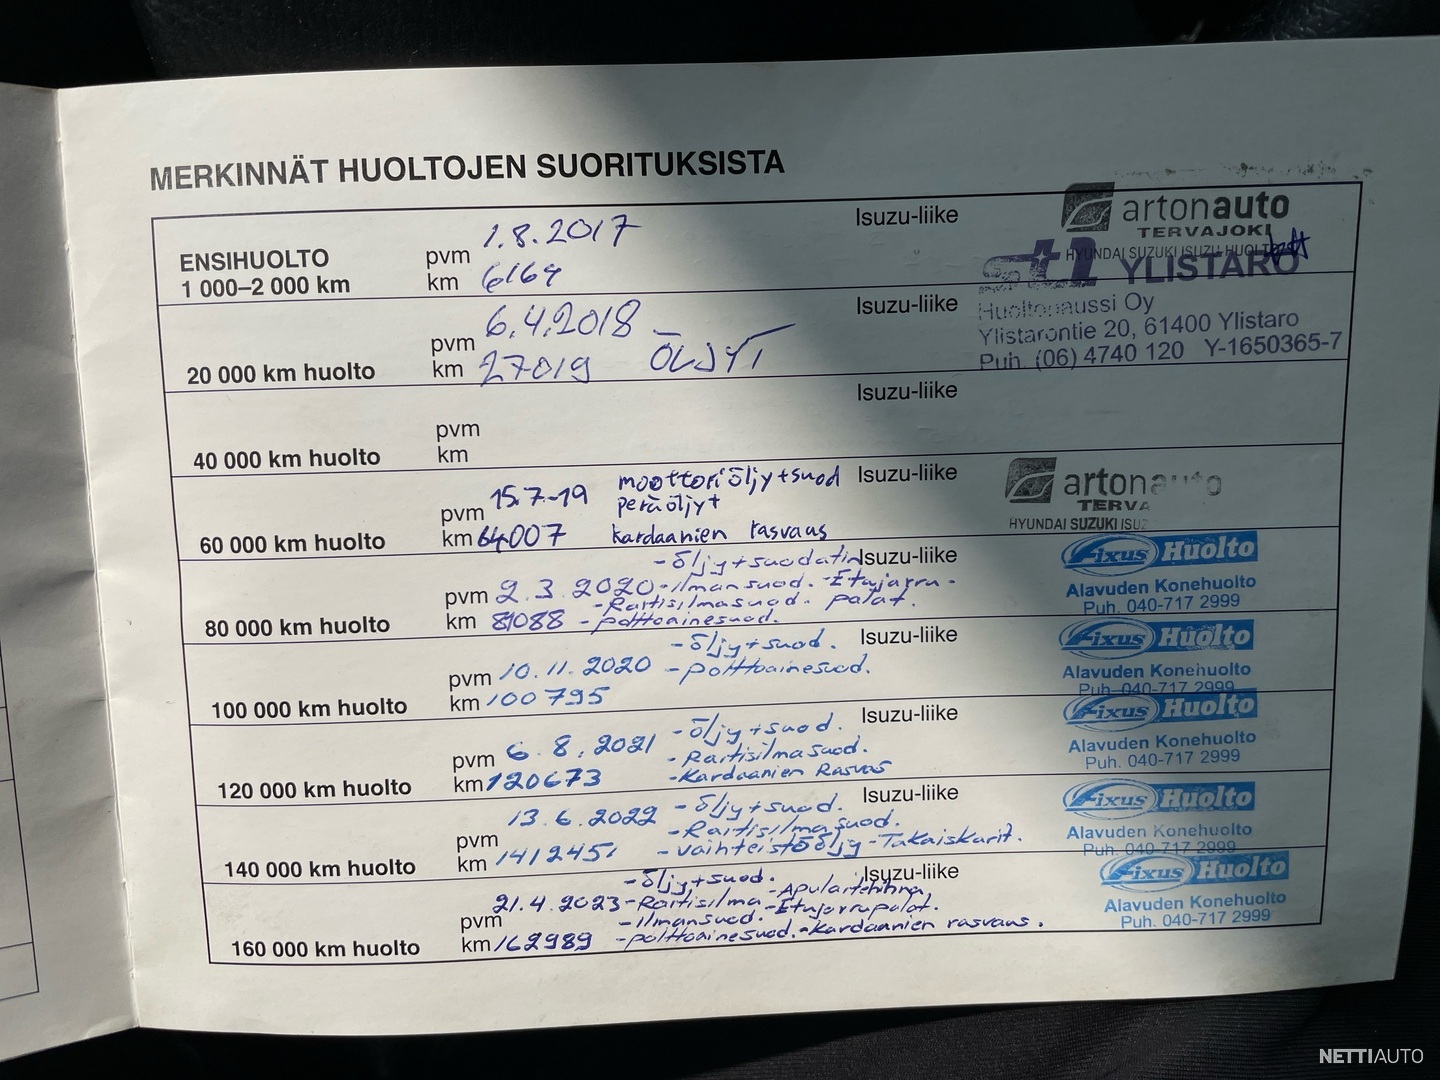 MERKINNÄT HUOLTOJEN SUORITUKSISTA
Isuzu-liike
artonauto
TERVAJOKI
HYUNDAI SUZUKI ISUZU HUOLTO
ENSIHUOLTO
1 000–2 000 km
pvm 1.8.2017
km 6164
st1 YLISTARO
Isuzu-liike
Huoltonaussi Oy
Ylistarontie 20, 61400 Ylistaro
Puh. (06) 4740 120 Y-1650365-7
20 000 km huolto
pvm 6.4.2018
km 27019 ÖLJYT
Isuzu-liike
40 000 km huolto
pvm
km
Isuzu-liike
artonauto
TERVA
HYUNDAI SUZUKI ISUZ
60 000 km huolto
pvm 15.7-19 moottoriöljy+suod
peräöljyt
km 64007 kardaanien rasvaus
Isuzu-liike
Fixus Huolto
Alavuden Konehuolto
Puh. 040-717 2999
80 000 km huolto
-öljy+suodatin
pvm 2.3.2020 -ilmansuod. -Etujarru-
-Raitisilmasuod. palat.
km 81088 -polttoainesuod.
Isuzu-liike
Fixus Huolto
Alavuden Konehuolto
Puh. 040-717 2999
100 000 km huolto
-öljy+suod.
pvm 10.11.2020 -polttoainesuod.
km 100795
Isuzu-liike
Fixus Huolto
Alavuden Konehuolto
Puh. 040-717 2999
120 000 km huolto
-öljy+suod.
pvm 6.8.2021 -Raitisilmasuod.
km 120673 -Kardaanien Rasvas
Isuzu-liike
Fixus Huolto
Alavuden Konehuolto
Puh. 040-717 2999
140 000 km huolto
pvm 13.6.2022 -öljy+suod.
-Raitisilmasuod.
km -vaihteistööljy -Takaiskarit.
Isuzu-liike
Fixus Huolto
Alavuden Konehuolto
Puh. 040-717 2999
160 000 km huolto
-öljy+suod.
pvm 21.4.2023 -Raitisilma -Apulaitehihna
-ilmansuod. -Etujarrupalat.
km 162989 -polttoainesuod. -Kardaanien rasvaus.
NETTIAUTO